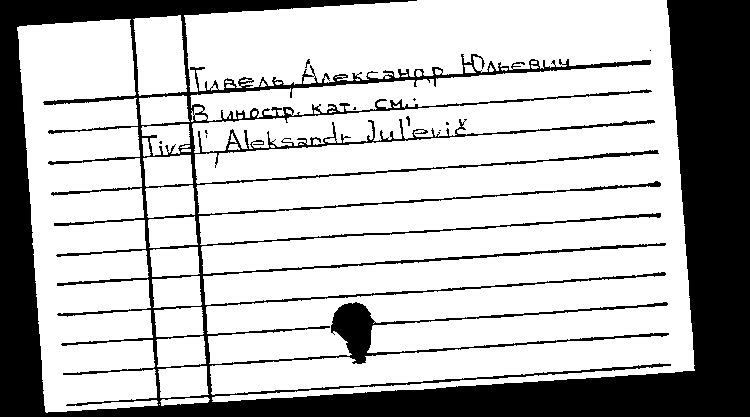 Тивель, Александр Юльевич
В иностр. кат. см.:
Tivel', Aleksandr Jul'evič